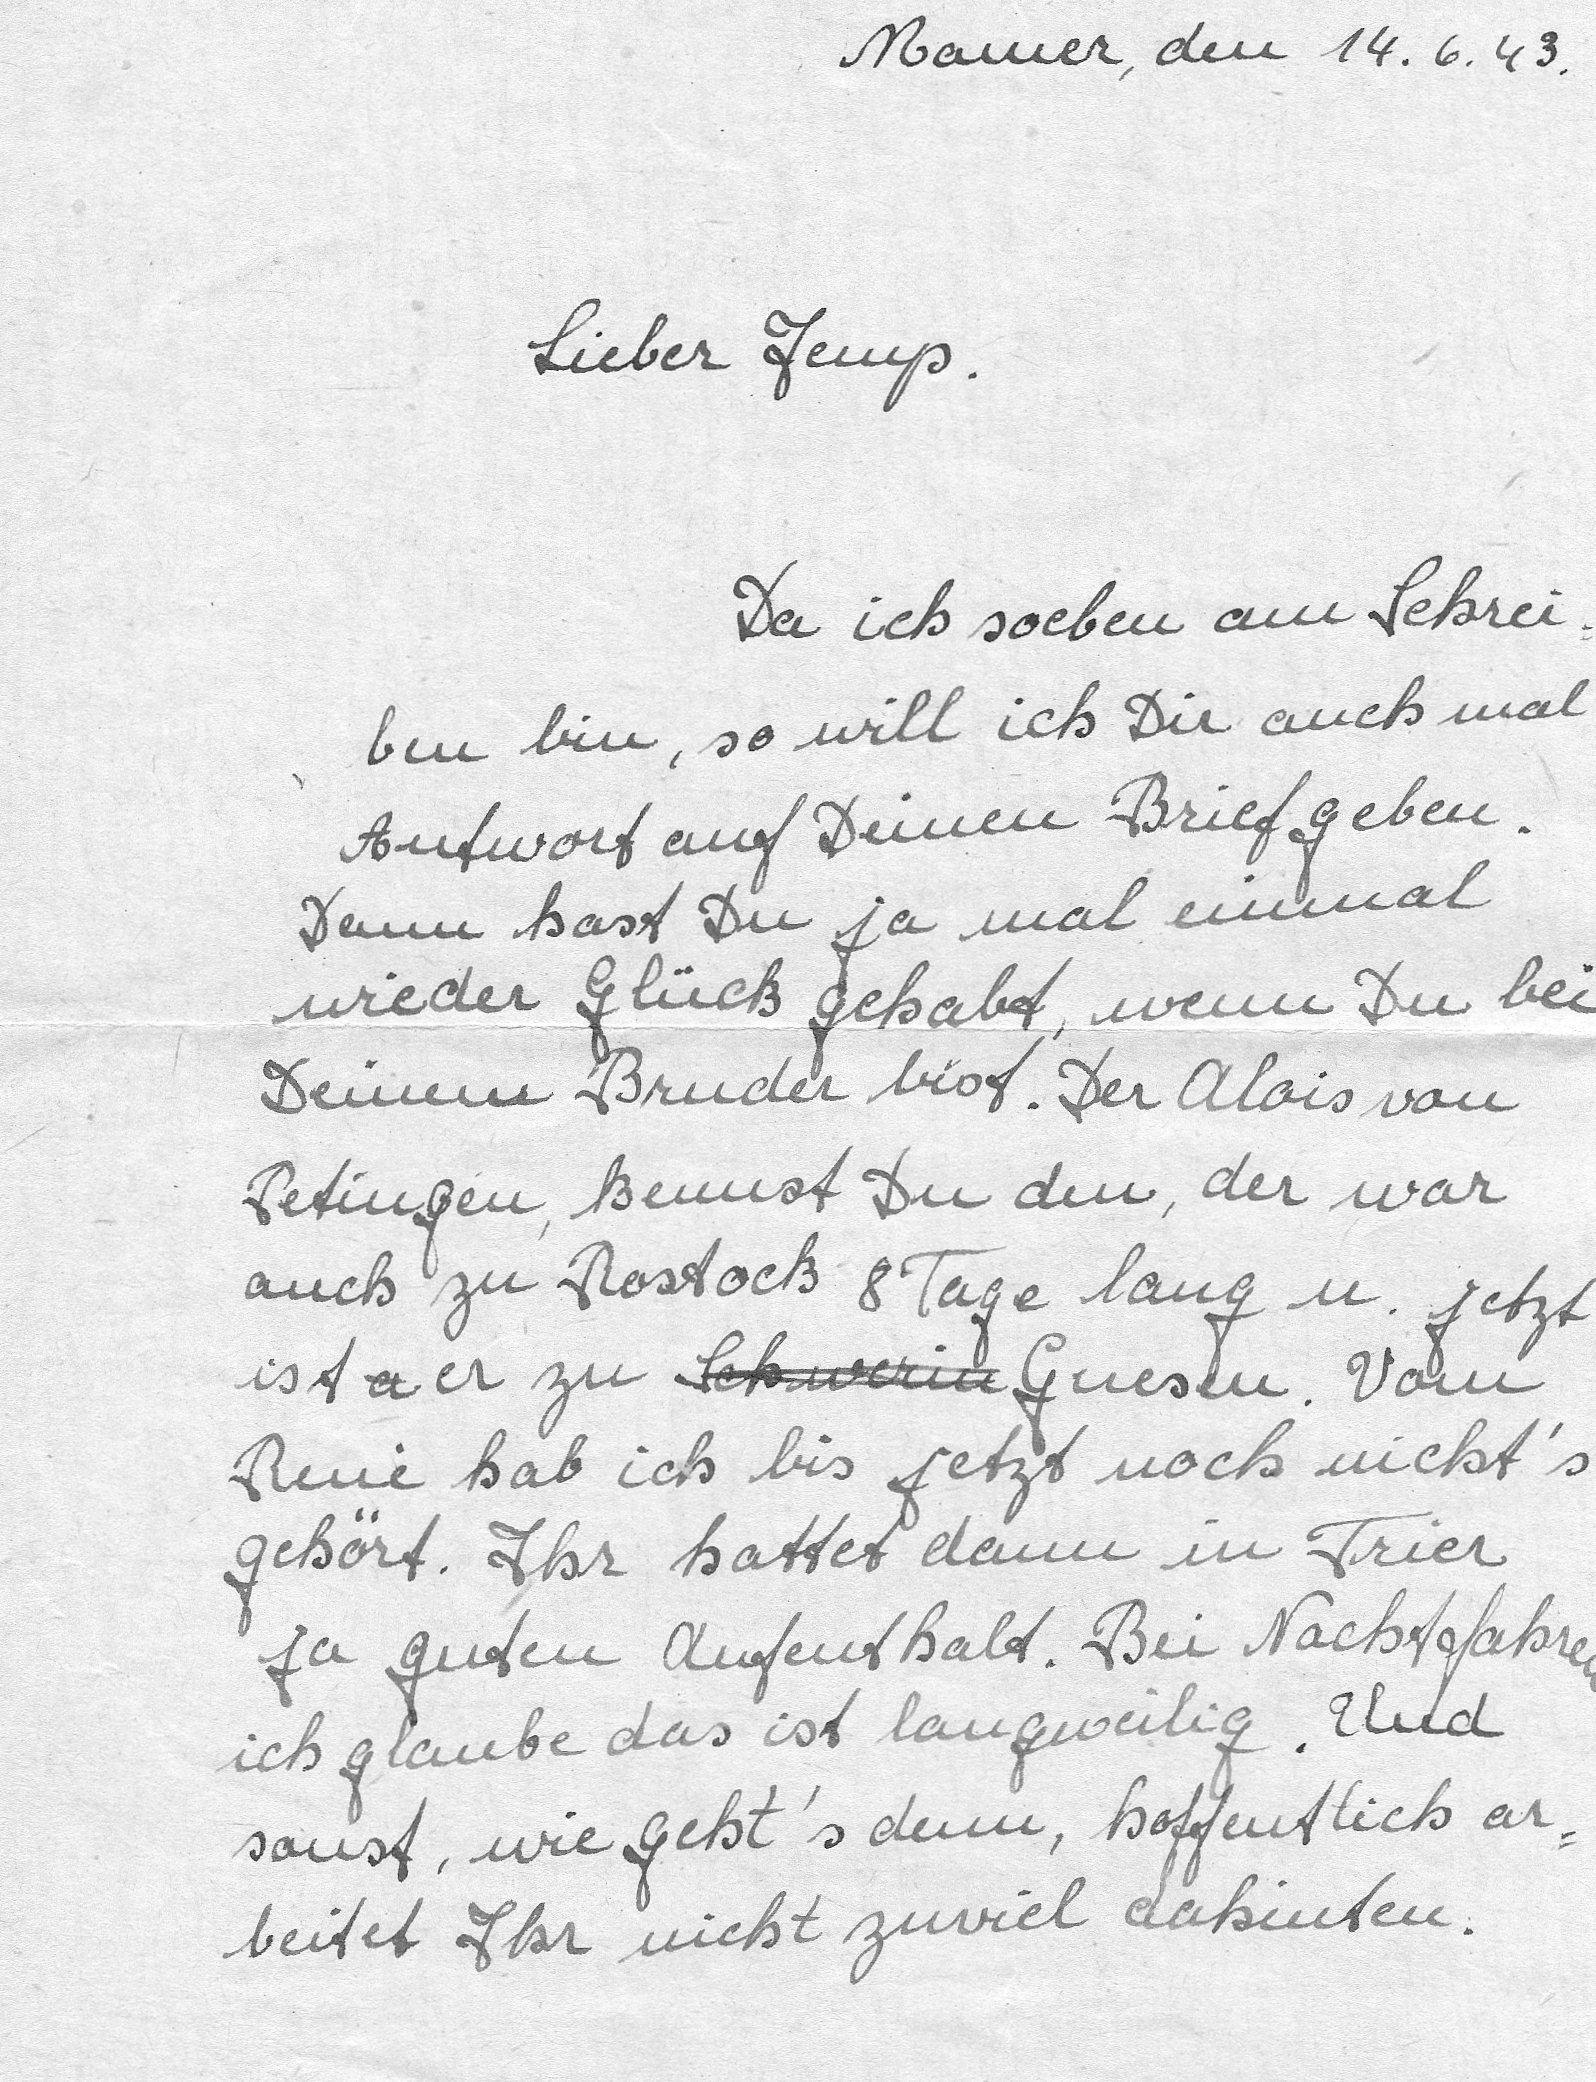 Mamer, den 14.6.43.
Lieber Jemp.
Da ich soeben am Schrei=
ben bin, so will ich Dir auch mal
Antwort auf Deinen Brief geben.
Dann hast Du ja mal einmal
wieder Glück gehabt, wenn Du bei
Deinem Bruder bist. Der Alois von
Petingen, kennst Du den, der war
auch zu Rostock 8 Tage lang u. jetzt
ist a er zu Schwerin Gnesen. Vom
René hab ich bis jetzt noch nicht's
gehört. Ihr hattet dann in Trier
ja guten Aufenthalt. Bei Nacht fahren
ich glaube das ist langweilig. Und
sonst, wie geht's denn, hoffentlich ar=
beitet Ihr nicht zuviel dahinten.